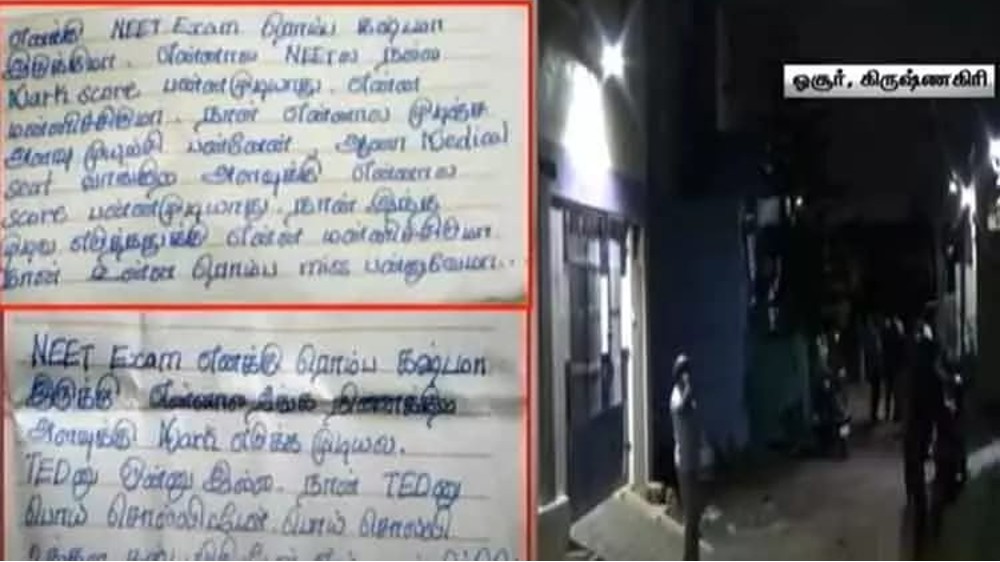 எனக்கு NEET Exam ரொம்ப கஷ்டமா
இருக்குமா. என்னால NEETல நல்ல
Mark score பண்ணமுடியாது. என்ன
மன்னிச்சிருமா. நான் என்னால முடிஞ்ச
அளவு முயற்சி பண்ணேன். ஆனா Medical
seat வாங்குற அளவுக்கு என்னால
score பண்ணமுடியாது. நான் இந்த
முடிவு எடுத்ததுக்கு என்ன மன்னிச்சிருமா.
நான் உன்ன ரொம்ப miss பண்ணுவேமா..
NEET Exam எனக்கு ரொம்ப கஷ்டமா
இருக்கு
அளவுக்கு Mark எடுக்க முடியல.
TEDனு ஒன்னு இல்ல. நான் TEDனு
பொய் சொல்லிட்டேன். பொய் சொல்லி
ஓசூர், கிருஷ்ணகிரி